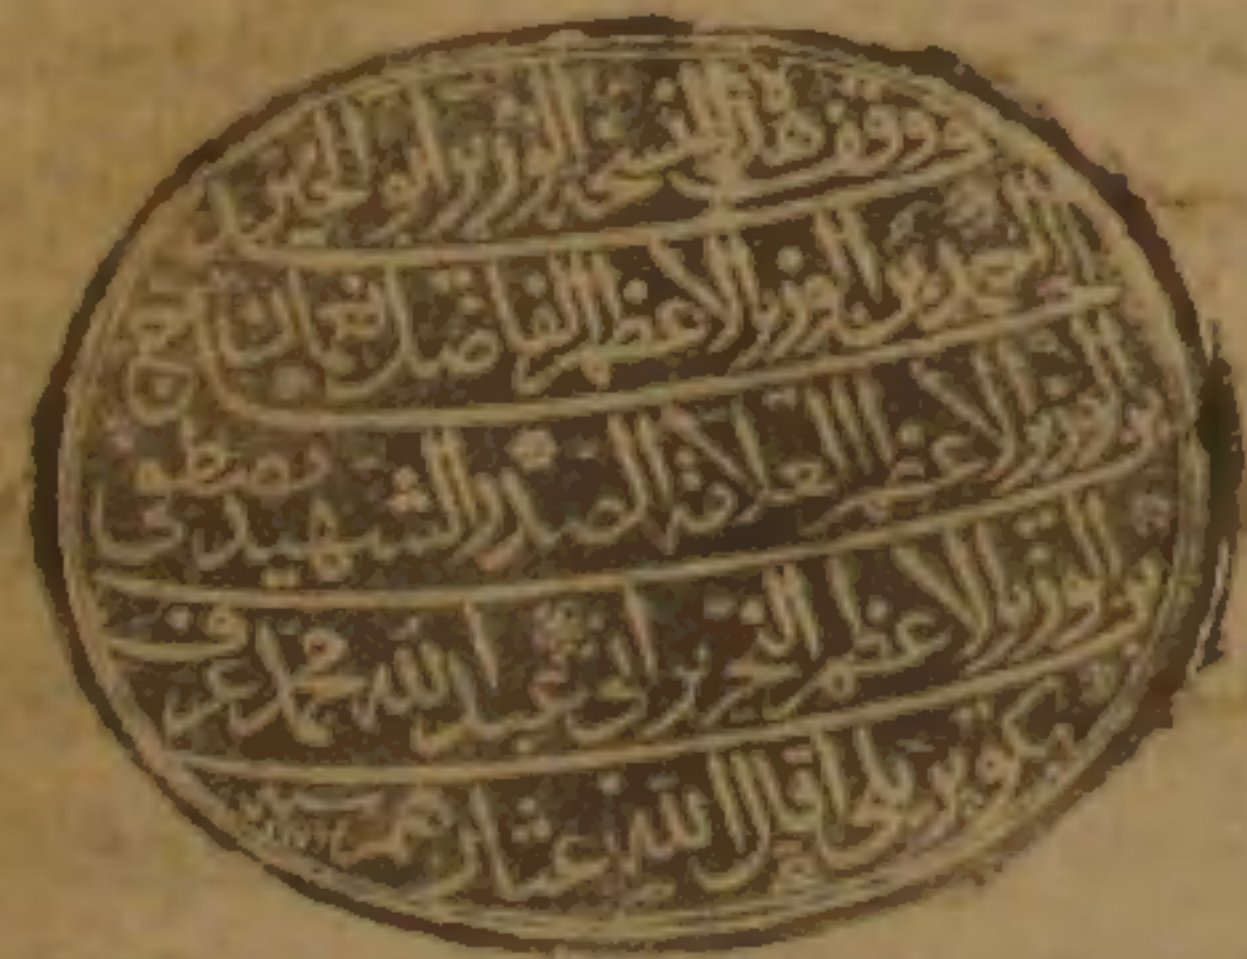 و وقف هذه النسخة الوزير ابو الخير
الحاج احمد بن الوزير الاعظم الفاضل نعمان
بن الوزير الاعظم العلامة الصدر الشهيد مصطفى
بن الوزير الاعظم النحرير ابي عبد الله محمد عرف
بكوپريلى اقال الله عثارهم